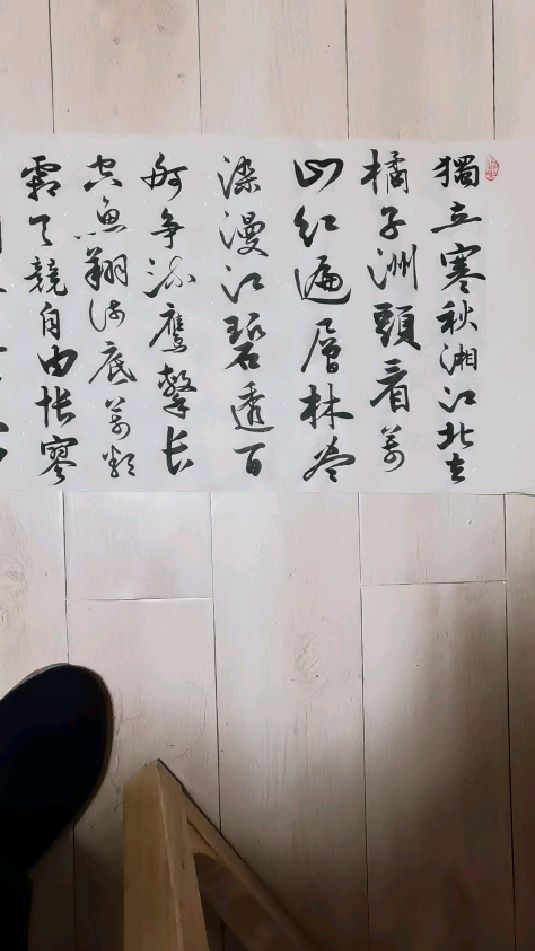 獨立寒秋湘江北去
橘子洲頭看萬
山红遍層林尽
染漫江碧透百
舸争流鷹擊长
空魚翔浅底萬類
霜天競自由怅寥